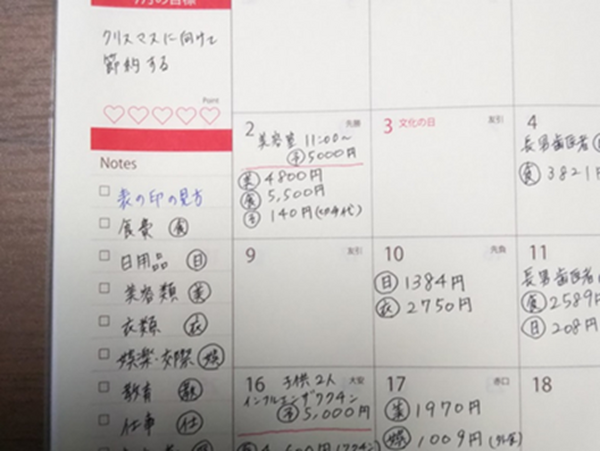 月の目標
クリスマスに向けて
節約する
Point
Notes
表の印の見方
食費 食
日用品 日
美容類 美
衣類 衣
娯楽・交際 娯
教育 教
仕事 仕
2 先勝
美容室 11:00〜
予 5000円
美 4800円
食 5,500円
予 140円(切手代)
3 文化の日 友引
4
長男歯医者
食 3821円
9 友引
10 先負
日 1384円
衣 2750円
11
長男歯医者
食 2589円
日 208円
16 大安
子供2人
インフルエンザワクチン
予 5,000円
17 赤口
美 1970円
娯 1009円(外食)
18